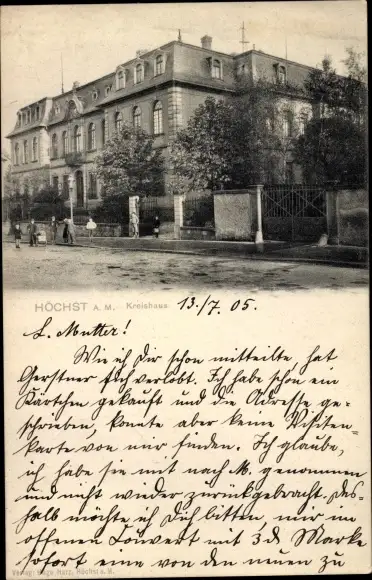 HÖCHST A. M. Kreishaus 13./7. 05.
L. Mutter!
Wie ich Dir schon mitteilte, hat
Gerstner sich verlobt. Ich habe schon ein
Kärtchen gekauft und die Adresse ge-
schrieben, konnte aber keine Visiten-
karte von mir finden. Ich glaube,
ich habe sie mit nach M. genommen
und nicht wieder zurückgebracht. Des-
halb möchte ich Dich bitten, mir im
offenen Couvert mit 3 ₰ Marke
sofort eine von den neuen zu
Verlag: Höchst a. M.